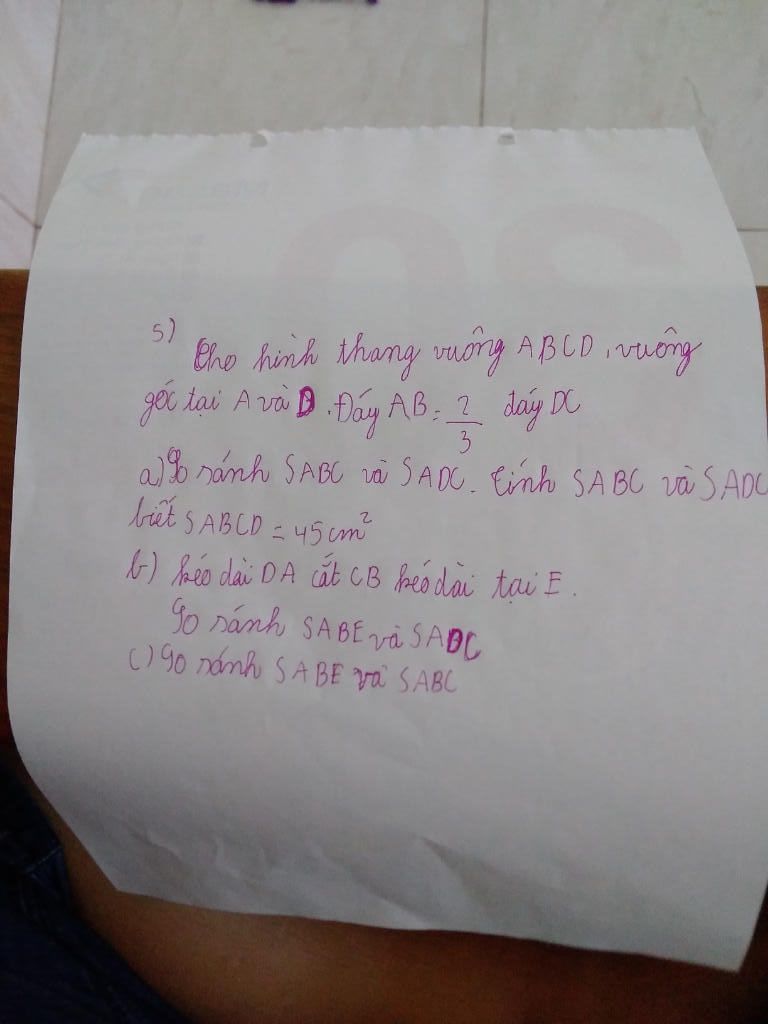 5)
Cho hình thang vuông ABCD, vuông
góc tại A và D. Đáy AB = 2/3 đáy DC
a) So sánh SABC và SADC. Tính SABC và SADC
biết SABCD = 45cm²
b) kéo dài DA cắt CB kéo dài tại E.
So sánh SABE và SADC
c) So sánh SABE và SABC